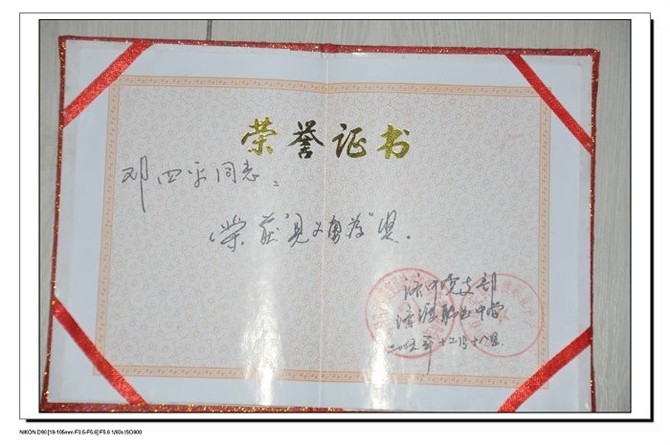 荣誉证书
邓四平同志：
荣获"见义勇为"奖。
济中党支部
济渡职业中学
十二月十八日
NIKON D90 [18-105mm F3.5-F5.6] F5.6 1/60s ISO900